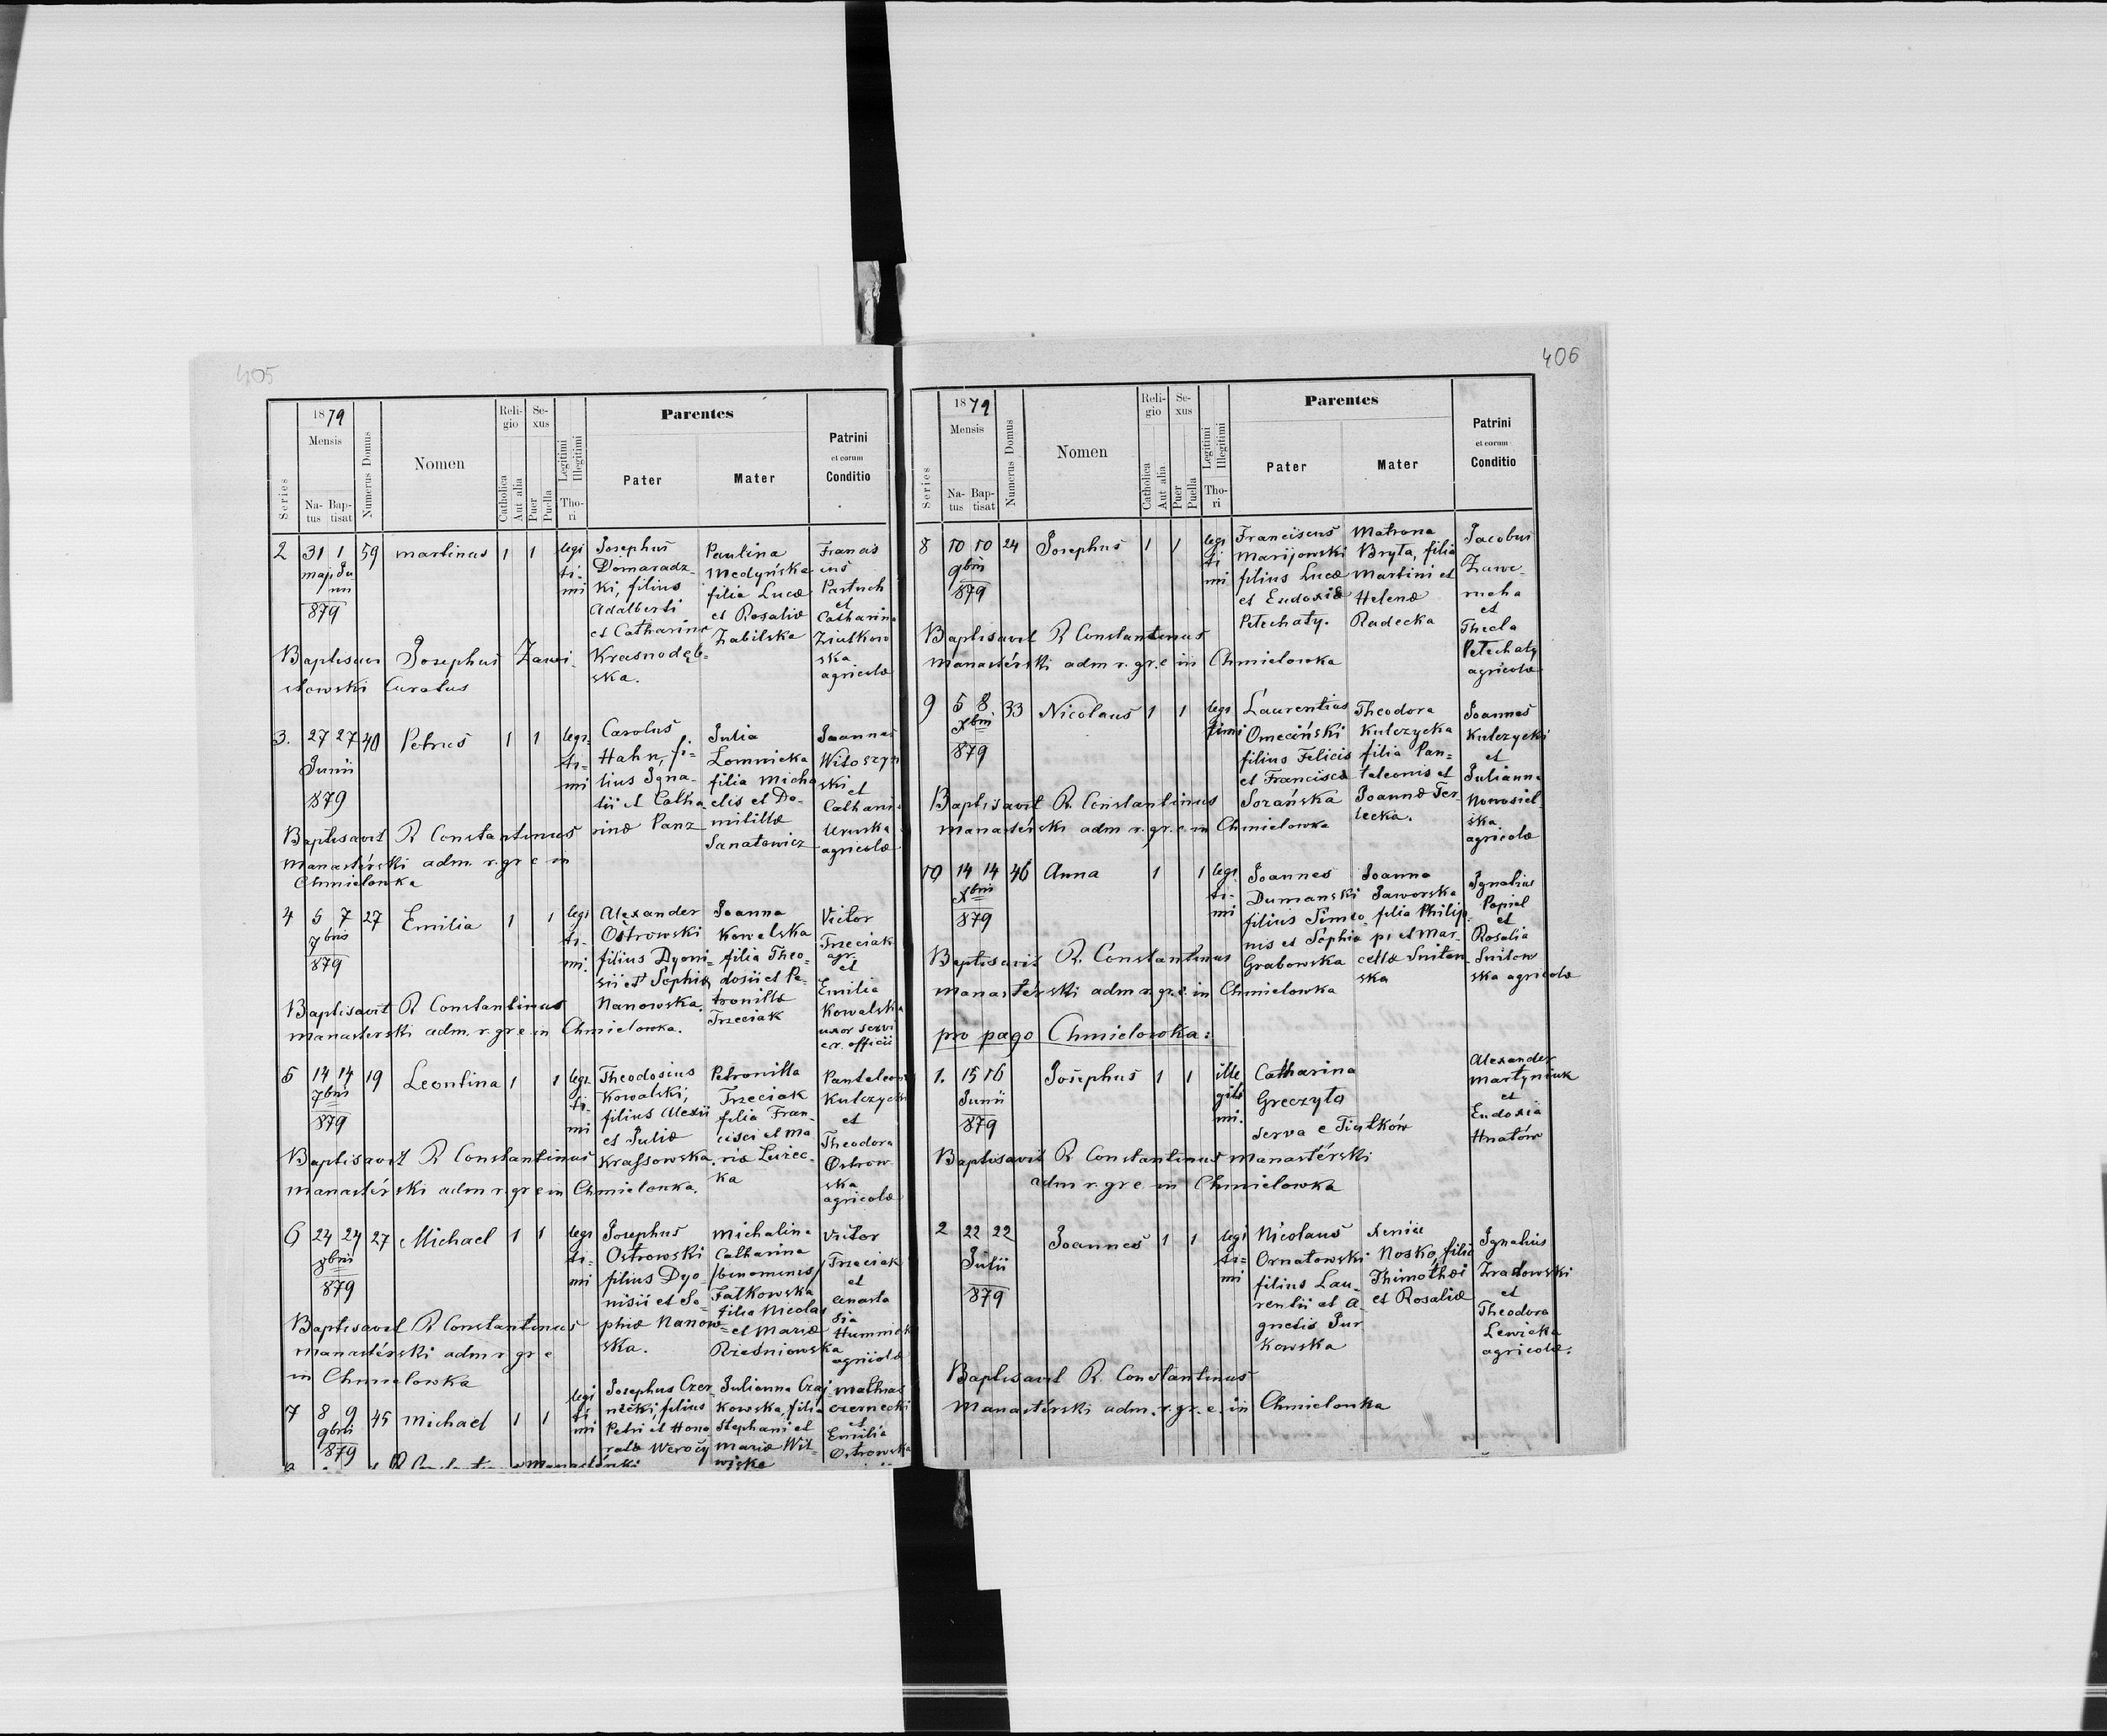 405
1879
Mensis
Series
Na-
tus
Bap-
tisat
Numerus Domus
Nomen
Reli-
gio
Catholica
Aut alia
Se-
xus
Puer
Puella
Legitimi
Illegitimi
Tho-
ri
Parentes
Pater
Mater
Patrini
et eorum
Conditio
2 31 1 59 Martinus 1 1
maji Ju
nii
879
legi
ti-
mi
Josephus
Domaradz-
ki, filius
Adalberti
et Catharinæ
Krasnodęb-
ska.
Paulina
Medyńska
filia Lucæ
et Rosaliæ
Zabilska
Francis
cus
Pastuch
et
Catharina
Ziułkow
ska
agricolæ
Baptisavit Josephus Zawi-
stowski Curatus
3. 27 27 40 Petrus 1 1
Junii
879
legi-
ti-
mi
Carolus
Hahn, fi-
lius Igna-
tii et Catha-
rinæ Panz
Julia
Lomnicka
filia Micha
elis et Do-
mitillæ
Sanatowicz
Joannes
Witoszyń
ski
et
Catharina
Uruska
agricolæ
Baptisavit R Constantinus
Manastérski adm. r. gr c in
Chmielowka
4 5 7 27 Emilia 1 1
7bris
879
legi
ti-
mi.
Alexander
Ostrowski
filius Dyoni-
sii et Sophiæ
Nanowska.
Joanna
Kowalska
filia Theo-
dosii et Pe-
tronillæ
Trzeciak
Victor
Trzeciak
agr.
et
Emilia
Kowalska
uxor servi
c.r. officii
Baptisavit R Constantinus
Manasterski adm. r. gr c in Chmielowka.
5 14 14 19 Leontina 1 1
7bris
879
legi
ti-
mi
Theodosius
Kowalski,
filius Alexii
et Juliæ
Krassowska.
Petronilla
Trzeciak
filia Fran-
cisci et Ma
riæ Luzec-
ka
Pantaleon
Kulczycki
et
Theodora
Ostrow-
ska
agricolæ
Baptisavit R Constantinus
Manastérski adm r. gr c in Chmielowka.
6 24 24 27 Michael 1 1
8bris
879
legi
ti-
mi
Josephus
Ostrowski
filius Dyo-
nisii et So-
phiæ Nanow-
ska.
Michalina
Catharina
/binominis/
Fałkowska
filia Nicolai
et Mariæ
Rześniowska
Victor
Trzeciak
et
Anasta
sia
Humnick
agricolæ
Baptisavit R Constantinus
Manastérski adm r. gr c
in Chmielowka
7 8 9 45 Michael 1 1
9bris
879
legi
ti
mi
Josephus Czer-
necki, filius
Petri et Hono
ratæ Weroży
Julianna Czaj-
kowska, filia
Stephani et
Mariæ Wit-
wicka
Mathias
Czernecki
et
Emilia
Ostrowska
406
1879
Mensis
Series
Na-
tus
Bap-
tisat
Numerus Domus
Nomen
Reli-
gio
Catholica
Aut alia
Se-
xus
Puer
Puella
Legitimi
Illegitimi
Tho-
ri
Parentes
Pater
Mater
Patrini
et eorum
Conditio
8 10 10 24 Josephus 1 1
9bris
879
legi
ti
mi
Franciscus
Marijowski
filius Lucæ
et Eudoxiæ
Petechaty.
Matrona
Bryła, filia
Martini et
Helenæ
Radecka
Jacobus
Zawe-
rucha
et
Thecla
Petechaty
agricolæ
Baptisavit R Constantinus
Manastérski adm r. gr. c in Chmielowka
9 5 8 33 Nicolaus 1 1
Xbris
879
legi
timi
Laurentius
Omeciński
filius Felicis
et Franciscæ
Sozańska
Theodora
Kulczycka
filia Pan-
taleonis et
Joannæ Ter
lecka.
Joannes
Kulczycki
et
Julianna
Nowosiel
ska
agricolæ
Baptisavit R Constantinus
Manastérski adm r. gr. c. in Chmielowka
10 14 14 46 Anna 1 1
Xbris
879
legi
ti-
mi
Joannes
Dumanski
filius Simeo-
nis et Sophiæ
Grabowska
Joanna
Jaworska
filia Philip-
pi et Mar-
cellæ Snitow
ska
Ignatius
Popiel
et
Rosalia
Snitow
ska agricolæ
Baptisavit R. Constantinus
Manastérski adm r. gr. c. in Chmielowka
pro pago Chmielowka:
1. 15 16 Josephus 1 1
Junii
879
ille
giti
mi.
Catharina
Greczyła
serva e Tiutków
Alexander
Martyniuk
et
Eudoxia
Hnatów
Baptisavit R Constantinus Manastérski
adm r. gr c. in Chmielowka
2 22 22 Joannes 1 1
Julii
879
legi
ti=
mi
Nicolaus
Ornatowski
filius Lau-
rentii et A-
gnetis Jur
kowska
Xenia
Nosko, filia
Thimothæi
et Rosaliæ
Ignatius
Zradowski
et
Theodora
Lewicka
agricolæ.
Baptisavit R Constantinus
Manastérski adm. r. gr. c. in Chmielowka